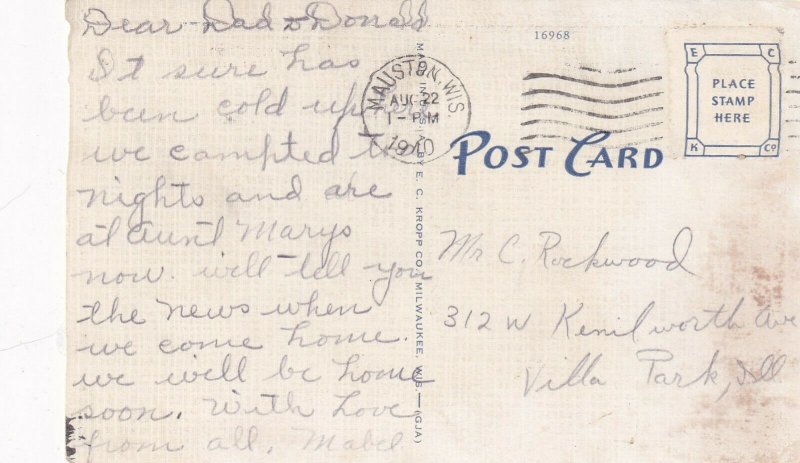 Dear Dad & Donald
It sure has
been cold up here
we campted
nights and are
at Aunt Marys
now. will tell you
the news when
we come home.
we will be home
soon. With Love
from all. Mabel
16968
MAUSTON, WIS.
AUG 22
1 - PM
1940
E C
PLACE
STAMP
HERE
K Co
POST CARD
MADE IN U.S.A. BY E. C. KROPP CO., MILWAUKEE, WIS.—(GJA)
Mr C. Rockwood
312 W Kenilworth Ave
Villa Park, Ill